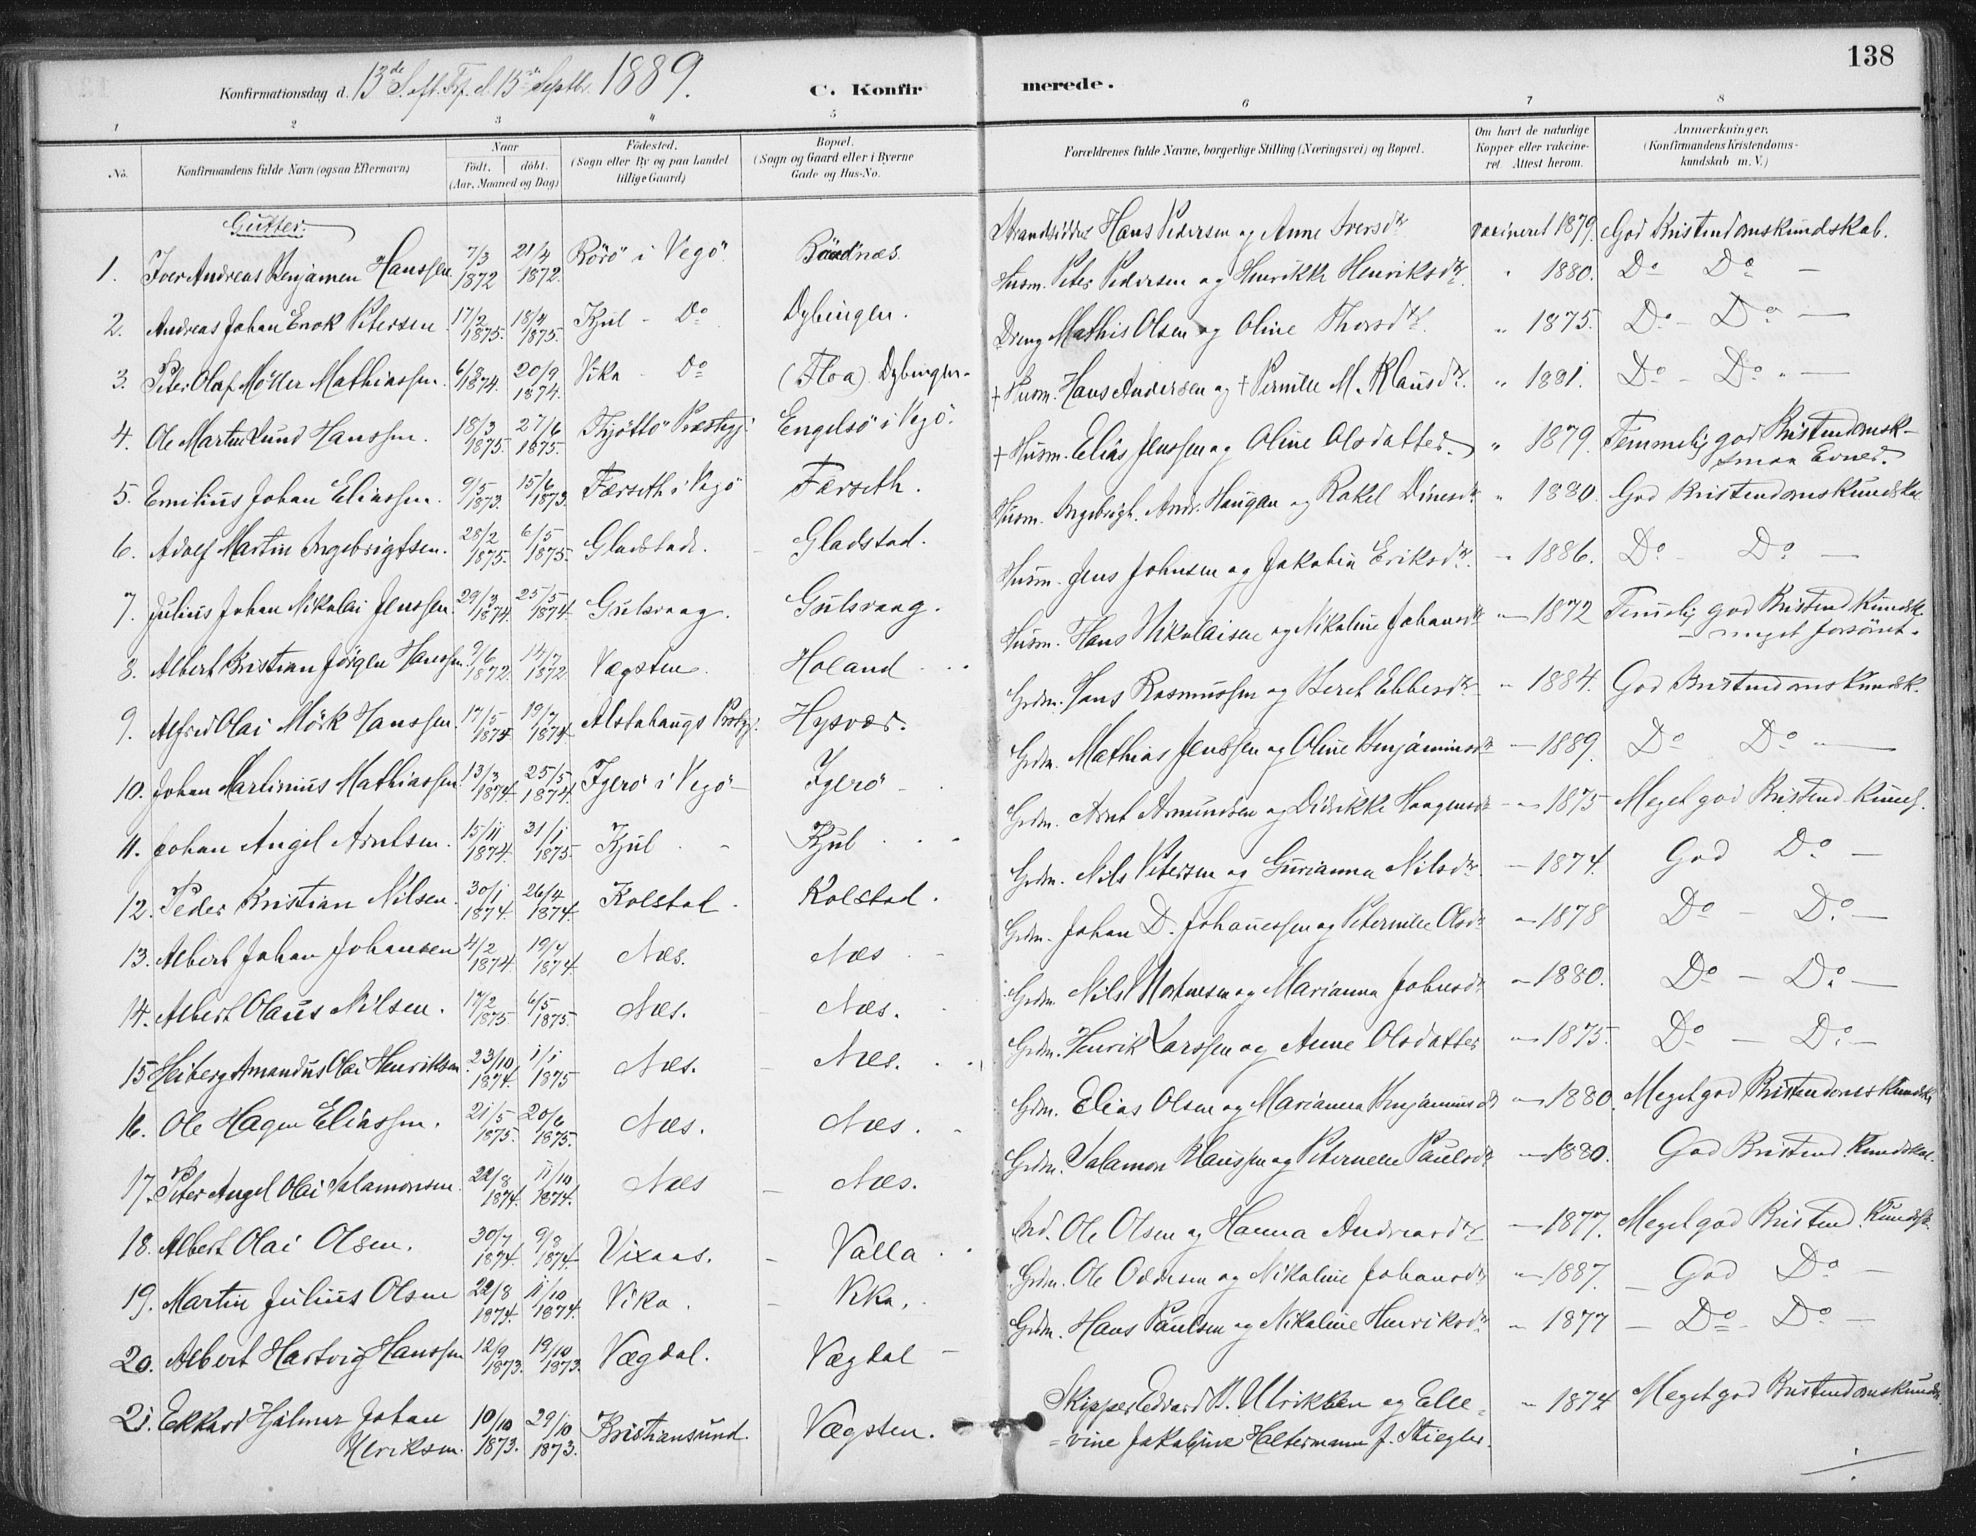 138
Konfirmationsdag d. 13de Sept. d. 15de Septbr. 1889.
C. Konfirmerede.
1 2 3 4 5 6 7 8
No.
Konfirmandens fulde Navn (ogsaa Efternavn)
Naar
födt. döbt.
(Aar, Maaned og Dag)
Födested.
(Sogn eller By og paa Landet
tillige Gaard)
Bopæl.
(Sogn og Gaard eller i Byerne
Gade og Hus-No.
Forældrenes fulde Navne, borgerlige Stilling (Næringsvei) og Bopæl.
Om havt de naturlige
Kopper eller vakcine-
ret. Attest herom.
Anmærkninger.
(Konfirmandens Kristendoms-
kundskab m. V.)
Gutter.
1. Iver Andreas Benjamen Hanssen 7/3 1872 21/4 1872. Rörö i Vegö Hans Pedersen og Anne Iversdr. vaxineret 1879. God Kristendomskundskab.
2. Andreas Johan Enok Petersen 17/2 1875. 18/4 1875. Kjul - Do Dybingen. Husm. Peter Pedersen og Henrikke Henriksdr. " 1880. Do Do -
3. Peter Olaf Möller Mathiassen. 6/8 1874. 20/9 1874. Vika - Do (Floa) Dybingen. Dreng Mathis Olsen og Oline Thorsdr. " 1875. Do - Do -
4. Ole Martin Lund Hanssen. 18/3 1875. 27/6 1875. Thjöttö Præstegj. Engelsö i Vegö. + Husm. Hans Andersen og + Pernille M. Klausdr. " 1881. Do - Do -
5. Emilius Johan Eliassen. 9/5 1873. 15/6 1873. Færseth i Vegö Færseth. + Husm. Elias Jenssen og Oline Olsdatter. " 1879. Temmelig god Kristendomsk-
smaa Evner.
6. Adolf Martin Ingebrigtsen. 28/2 1875. 6/5 1875. Gladstad. Gladstad. Husm. Ingebrigt. Andr. Haugan og Rakel Dinesdr. " 1880. God Kristendomskundskab
7. Julius Johan Nikolai Jenssen. 29/3 1874. 25/5 1874. Gulsvaag. Gulsvaag. Husm. Jens Johnsen og Jakobin Eriksdr. - 1886. Do - Do -
8. Albert Kristian Jörgen Hanssen 9/6 1872. 14/7 1872 Vægsten. Holand Husm. Hans Nikolaisen og Nikoline Johansdr. 1872 Temelig god Kristend. Kundsk.
- meget forsömt.
9. Alfred Olai Mörk Hanssen. 17/5 1874 19/7 1874 Alstahaugs Hysvær. Grdm. Hans Rasmussen og Beret Ebbesdr. 1884. God Kristendomskundsk.
10. Johan Martinius Mathiassen 13/3 1874. 25/5 1874. Igerö i Vegö Igerö Grdm. Mathias Jenssen og Oline Benjaminsdr. 1889. Do Do -
11. Johan Angel Arntsen. 15/11 1874. 31/1 1875. Kjul Kjul Grdm. Arnt Amundsen og Didrikke Haagensdr. 1875 Meget god Kristend. Kundsk.
12. Peder Kristian Nilsen. 30/1 1874. 26/4 1874. Kolstad. Kolstad. Grdm. Nils Petersen og Gurianna Nilsdr. 1874. God Do -
13. Albert Johan Johansen 4/2 1874. 19/4 1874. Næs. Næs Grdm. Johan D. Johanessen og Peternille Olsdr. 1878 Do - Do. -
14. Albert Olaus Nilsen. 17/2 1875 6/5 1875. Næs. Næs. Grdm. Nils Mortensen og Marianna Johnsdr. 1880. Do - Do. -
15. Heiberg Amandus Olai Henriksen. 23/10 1874. 1/1 1875 Næs. Næs. Grdm. Henrik Larssen og Anne Olsdatter 1875. Do - Do. -
16. Ole Hagen Eliassen. 21/5 1875. 20/6 1875. Næs. Næs. Grdm. Elias Olsen og Marianna Benjaminsdr 1880. Meget god Kristendomskundsk
17. Peter Angel Olai Salamonsen. 22/8 1874. 11/10 1874. Næs Næs. Grdm. Salamon Klaussen og Peternelle Paulsdr. 1880. God Kristend. Kundskab.
18. Albert Olai Olsen. 30/7 1874. 9/8 1874 Vixaas. Valla Ole Olsen og Hanna Andreasdr. 1877. Meget god Kristend. Kundsk.
19. Martin Julius Olsen 22/8 1874. 11/10 1874. Vika. Vika. Grdm. Ole Odersen og Nikoline Johansdr. 1887. - God Do -
20. Albert Hartvig Hanssen 12/9 1873. 19/10 1873. Vægdal. Vægdal Grdm. Hans Paulsen og Nikoline Henriksdr. 1877 - Do - Do -
21. Ekkard Hjalmar Johan
Ulriksen. 10/10 1873. 29/10 1873. Kristiansund. Vægsten. Skipper Edvard B. Ulriksen og Elle-
=vine Jakobine Holtermann f. Stiegler. 1874 Meget god Kristendomskundsk